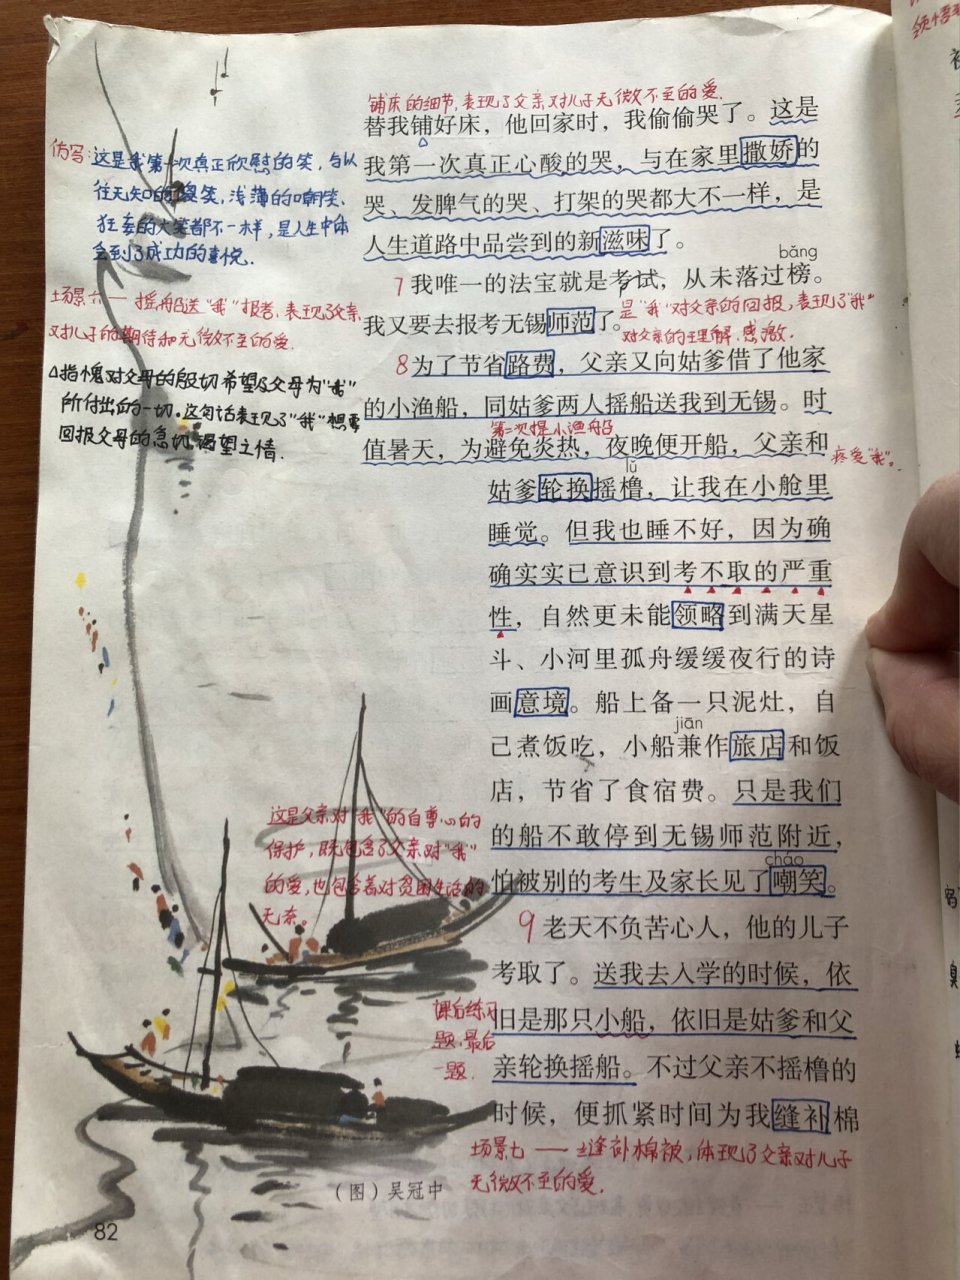 铺床的细节,表现了父亲对儿子无微不至的爱.
替我铺好床，他回家时，我偷偷哭了。这是
我第一次真正心酸的哭，与在家里撒娇的
哭、发脾气的哭、打架的哭都大不一样，是
人生道路中品尝到的新滋味了。
仿写:这是我第一次真正欣慰的笑，与以
往无知的傻笑，浅薄的嘲笑、
狂妄的大笑都不一样，是人生中体
会到了成功的喜悦.
bǎng
7 我唯一的法宝就是考试，从未落过榜。
我又要去报考无锡师范了。
是"我"对父亲的回报,表现了"我"
对父亲的理解、感激.
场景六——摇船送"我"报考,表现了父亲
对儿子的期待和无微不至的爱.
8 为了节省路费，父亲又向姑爹借了他家
的小渔船，同姑爹两人摇船送我到无锡。时
第一次提小渔船
值暑天，为避免炎热，夜晚便开船，父亲和
疼爱"我"。
lǔ
姑爹轮换摇橹，让我在小舱里
睡觉。但我也睡不好，因为确
确实实已意识到考不取的严重
性，自然更未能领略到满天星
斗、小河里孤舟缓缓夜行的诗
画意境。船上备一只泥灶，自
jiān
己煮饭吃，小船兼作旅店和饭
店，节省了食宿费。只是我们
的船不敢停到无锡师范附近，
cháo
怕被别的考生及家长见了嘲笑。
指愧对父母的殷切希望及父母为"我"
所付出的一切。这句话表现了"我"想要
回报父母的急切、渴望之情.
这是父亲对"我"的自尊心的
保护，既包含了父亲对"我"
的爱,也包含着对贫困生活的
无奈。
9 老天不负苦心人，他的儿子
考取了。送我去入学的时候，依
旧是那只小船，依旧是姑爹和父
亲轮换摇船。不过父亲不摇橹的
时候，便抓紧时间为我缝补棉
课后练习
题,最后
一题.
场景七——缝补棉被,体现了父亲对儿子
无微不至的爱.
（图）吴冠中
82
领悟